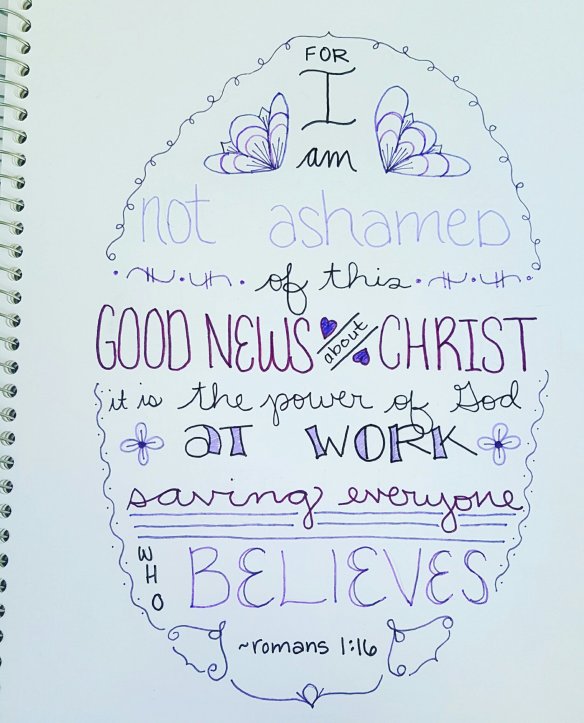 FOR
I
am
not ashamed
of this
GOOD NEWS about CHRIST
it is the power of God
at WORK
saving everyone
WHO BELIEVES
~romans 1:16